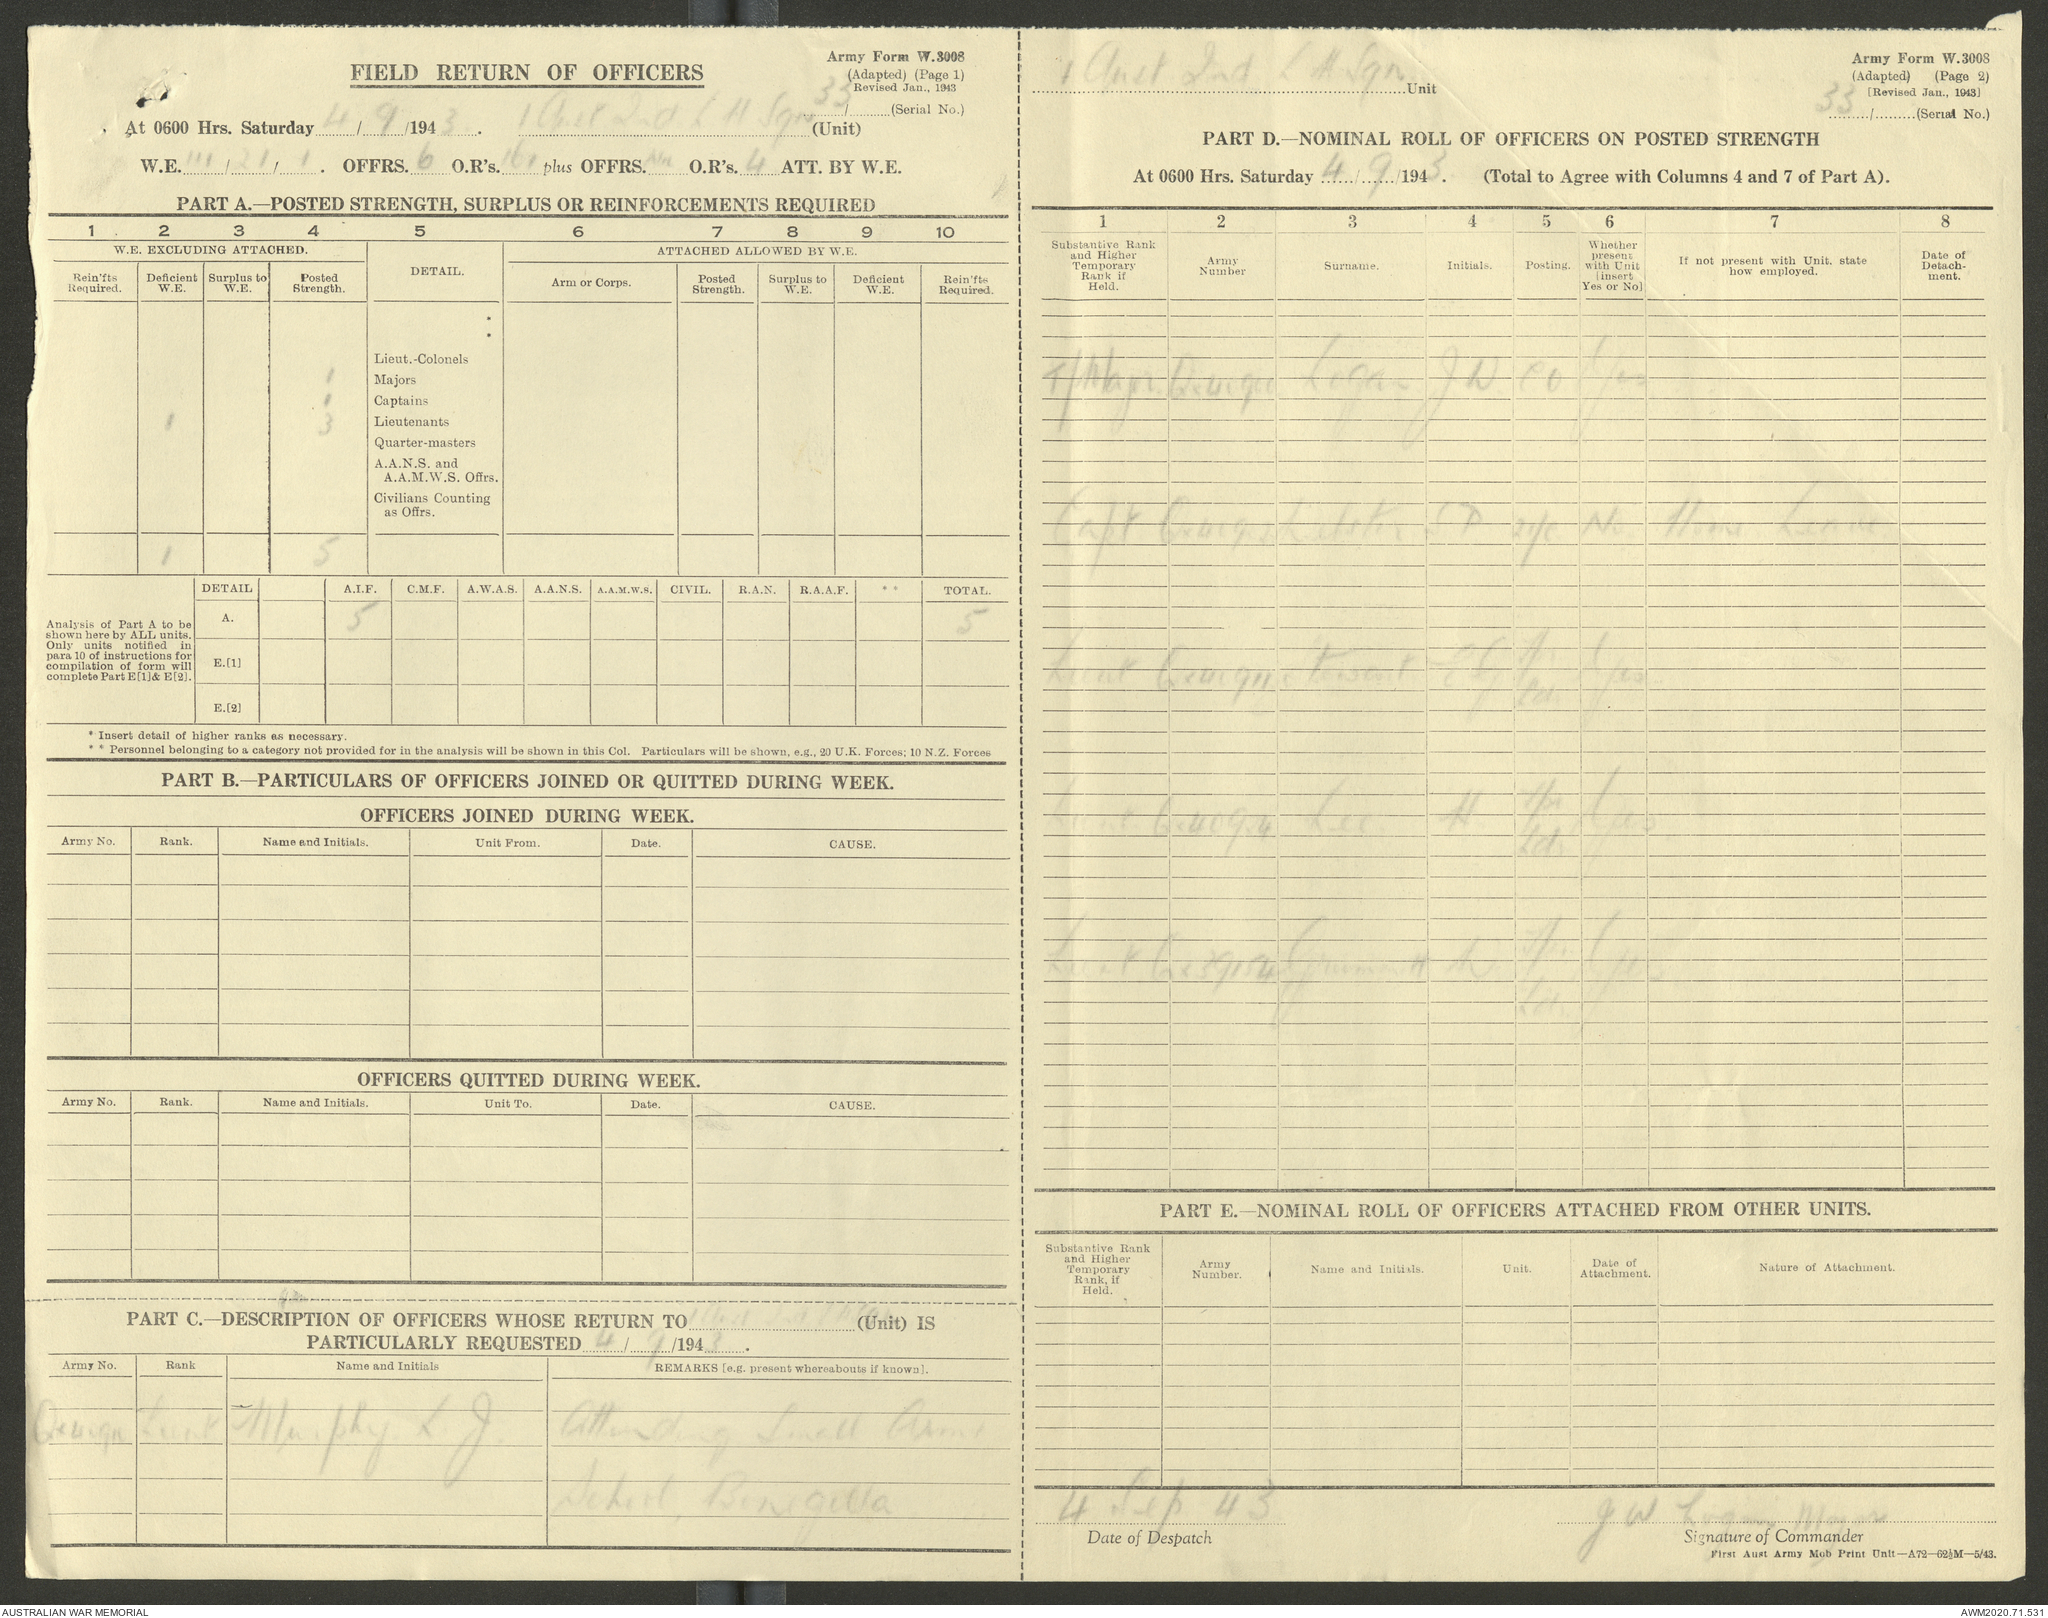 FIELD RETURN OF OFFICERS
Army Form W.3008
(Adapted) (Page 1)
Revised Jan., 1943
33 / (Serial No.)
At 0600 Hrs. Saturday 4 / 9 /1943. 1 Aust Ind L H Sqn (Unit)
W.E. III / 21 / 1. OFFRS. 6 O.R's. 161 plus OFFRS. Nil O.R's. 4 ATT. BY W.E.
PART A.—POSTED STRENGTH, SURPLUS OR REINFORCEMENTS REQUIRED
1 2 3 4 5 6 7 8 9 10
W.E. EXCLUDING ATTACHED. DETAIL. ATTACHED ALLOWED BY W.E.
Rein'fts Required. Deficient W.E. Surplus to W.E. Posted Strength. Arm or Corps. Posted Strength. Surplus to W.E. Deficient W.E. Rein'fts Required.
*
*
Lieut.-Colonels
1 Majors
1 Captains
1 3 Lieutenants
Quarter-masters
A.A.N.S. and
A.A.M.W.S. Offrs.
Civilians Counting
as Offrs.
1 5
DETAIL A.I.F. C.M.F. A.W.A.S. A.A.N.S. A.A.M.W.S. CIVIL. R.A.N. R.A.A.F. ** TOTAL.
Analysis of Part A to be shown here by ALL units. Only units notified in para 10 of instructions for compilation of form will complete Part E[1]& E[2].
A. 5 5
E.[1]
E.[2]
* Insert detail of higher ranks as necessary.
* * Personnel belonging to a category not provided for in the analysis will be shown in this Col. Particulars will be shown, e.g., 20 U.K. Forces; 10 N.Z. Forces
PART B.—PARTICULARS OF OFFICERS JOINED OR QUITTED DURING WEEK.
OFFICERS JOINED DURING WEEK.
Army No. Rank. Name and Initials. Unit From. Date. CAUSE.
OFFICERS QUITTED DURING WEEK.
Army No. Rank. Name and Initials. Unit To. Date. CAUSE.
PART C.—DESCRIPTION OF OFFICERS WHOSE RETURN TO 1 Aust Ind L H Sqn (Unit) IS
PARTICULARLY REQUESTED 4 / 9 /1943.
Army No. Rank Name and Initials REMARKS [e.g. present whereabouts if known].
Lieut Murphy L. J. Attending Small Arms
School, Bonegilla
1 Aust Ind L H Sqn Unit
Army Form W.3008
(Adapted) (Page 2)
[Revised Jan., 1943]
33 / (Serial No.)
PART D.—NOMINAL ROLL OF OFFICERS ON POSTED STRENGTH
At 0600 Hrs. Saturday 4 / 9 /1943. (Total to Agree with Columns 4 and 7 of Part A).
1 2 3 4 5 6 7 8
Substantive Rank and Higher Temporary Rank if Held. Army Number Surname. Initials. Posting. Whether present with Unit (insert Yes or No] If not present with Unit, state how employed. Date of Detachment.
T/Major Logan J W CO Yes
Capt S P 2i/c No Home Leave
Lieut Yes
Lieut Lee H Tp Ldr Yes
Lieut Tp Ldr Yes
PART E.—NOMINAL ROLL OF OFFICERS ATTACHED FROM OTHER UNITS.
Substantive Rank and Higher Temporary Rank, if Held. Army Number. Name and Initials. Unit. Date of Attachment. Nature of Attachment.
4 Sep 43 J W Logan Major
Date of Despatch Signature of Commander
First Aust Army Mob Print Unit—A72—62½M—5/43.
AUSTRALIAN WAR MEMORIAL AWM2020.71.531